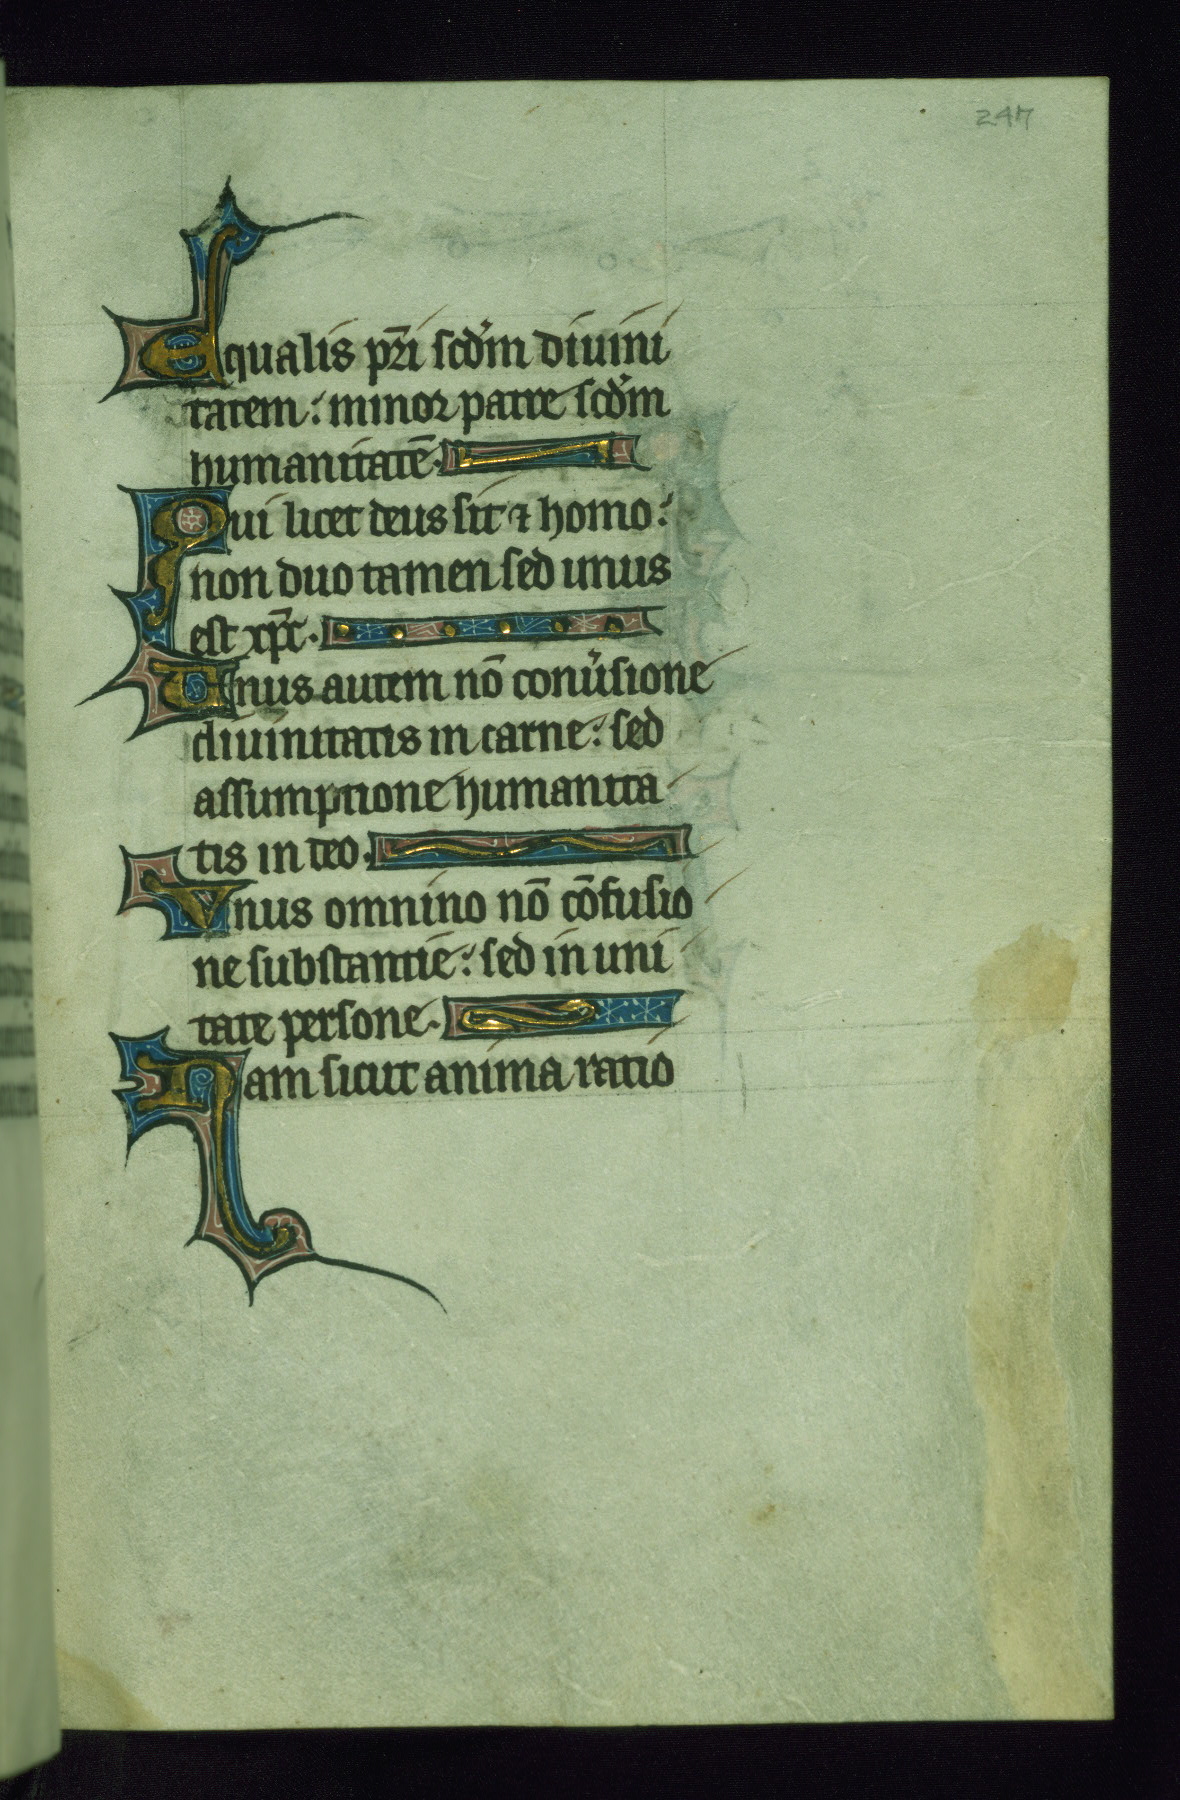 247
Equalis pr̄i scd̓m diuini
tatem : minor patre scd̓m
humanitatē.
Qui licet deus sit ⁊ homo :
non duo tamen sed unus
est xp̄c.
Unus autem nō conu̓sione
diuinitatis in carne : sed
assumptione humanita
tis in deo.
Vnus omnino nō cōfusio
ne substantie : sed in uni
tate persone.
Nam sicut anima ratio